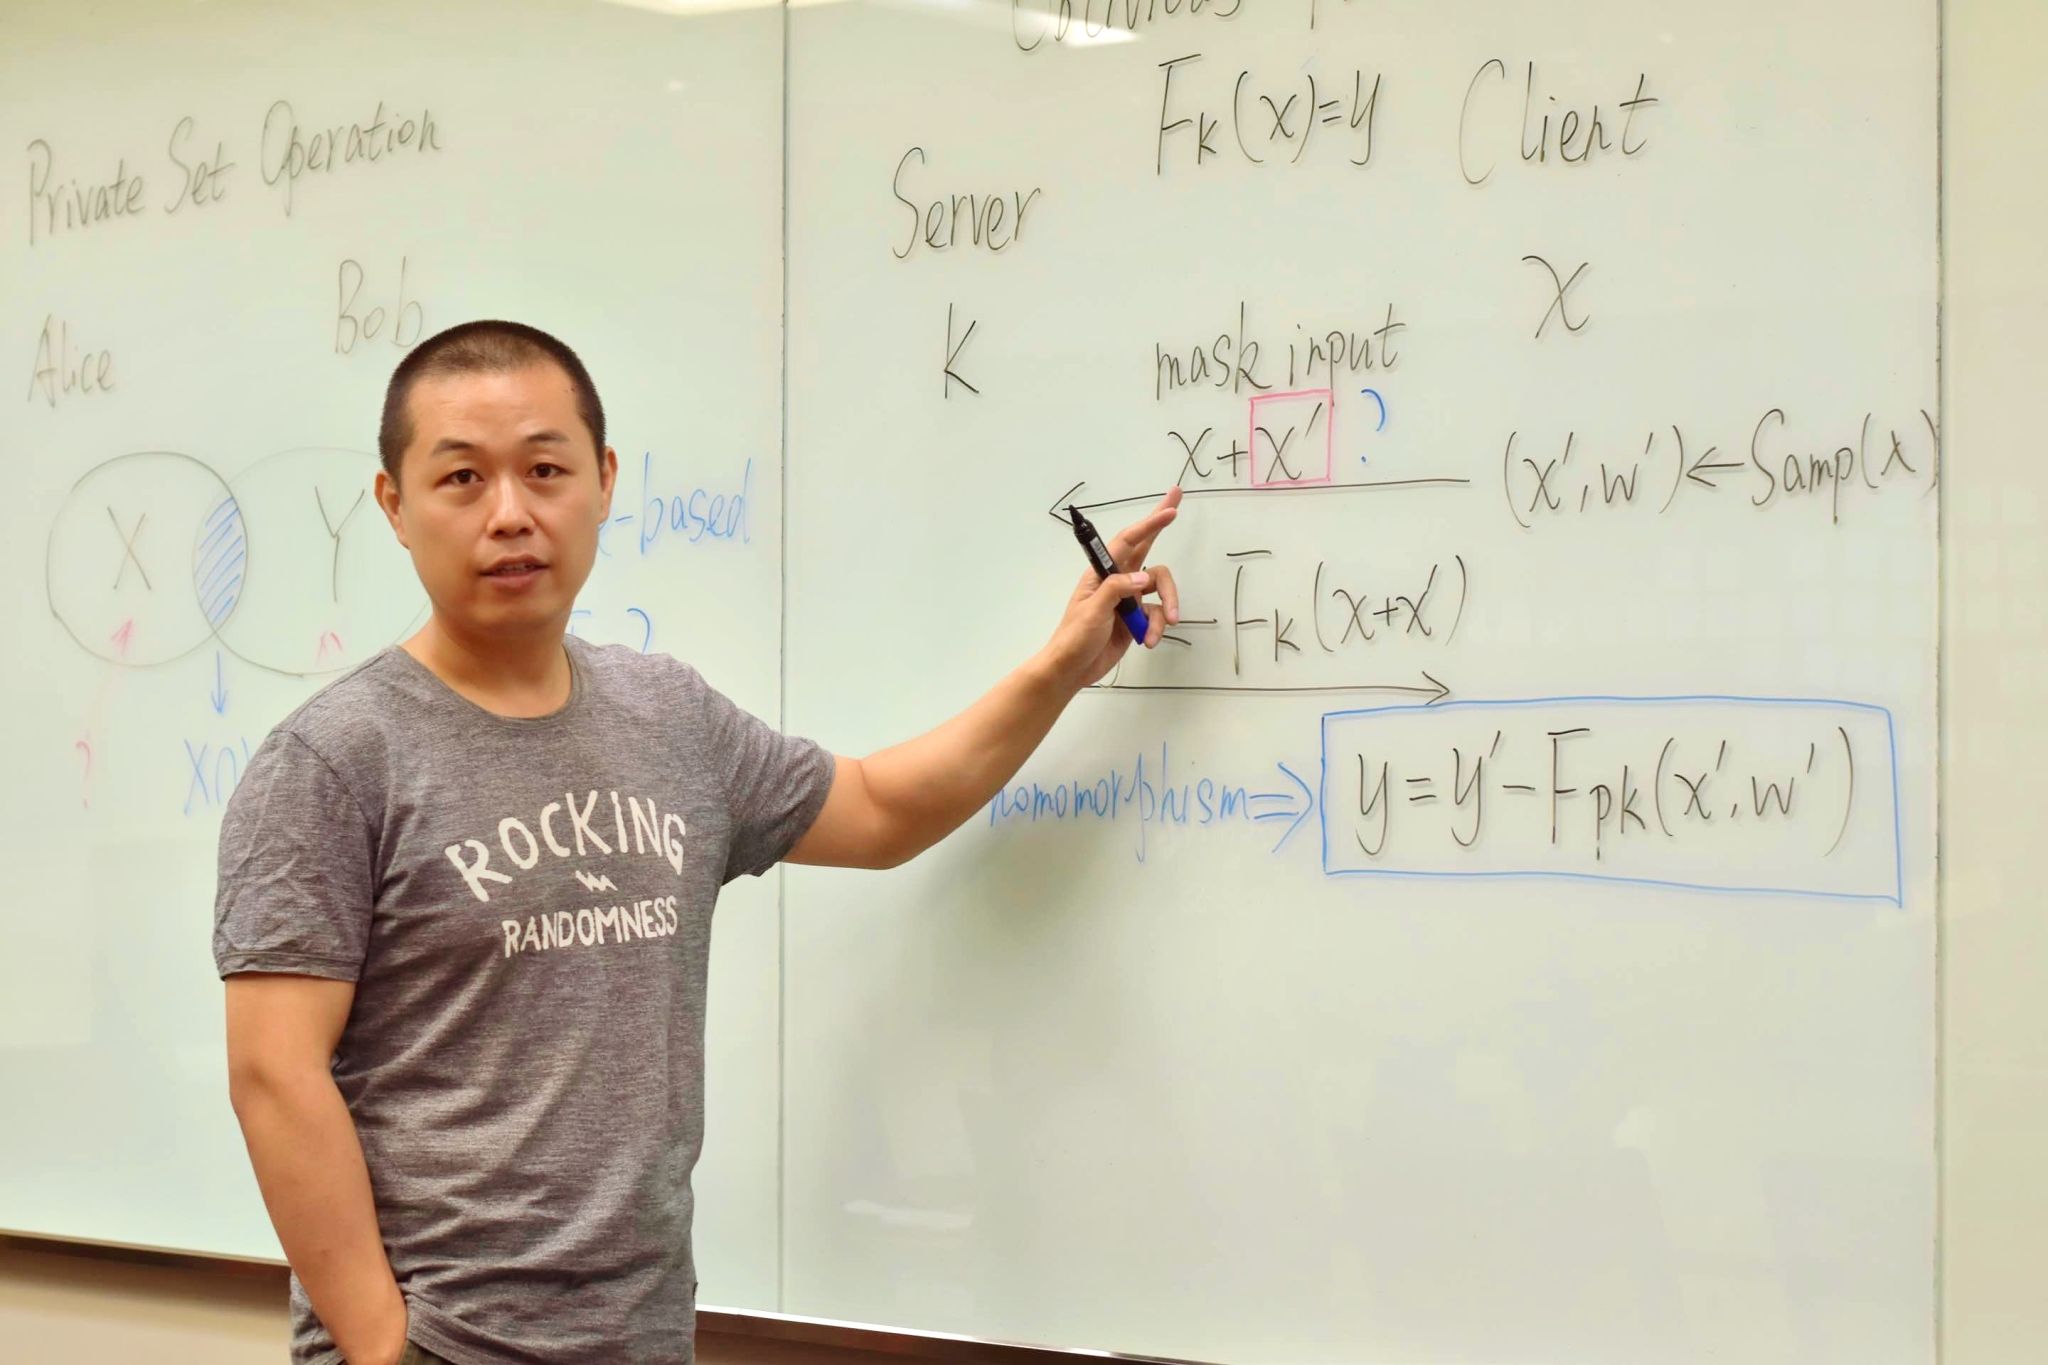 Private Set Operation
Alice
Bob
X
Y
-based
?
?
Oblivious
Fk(x)=y
Server
Client
k
x
mask input
x+x' ?
(x', w') ← Samp(x)
← Fk(x+x')
homomorphism ⇒
y = y' - Fpk(x', w')
ROCKING
RANDOMNESS